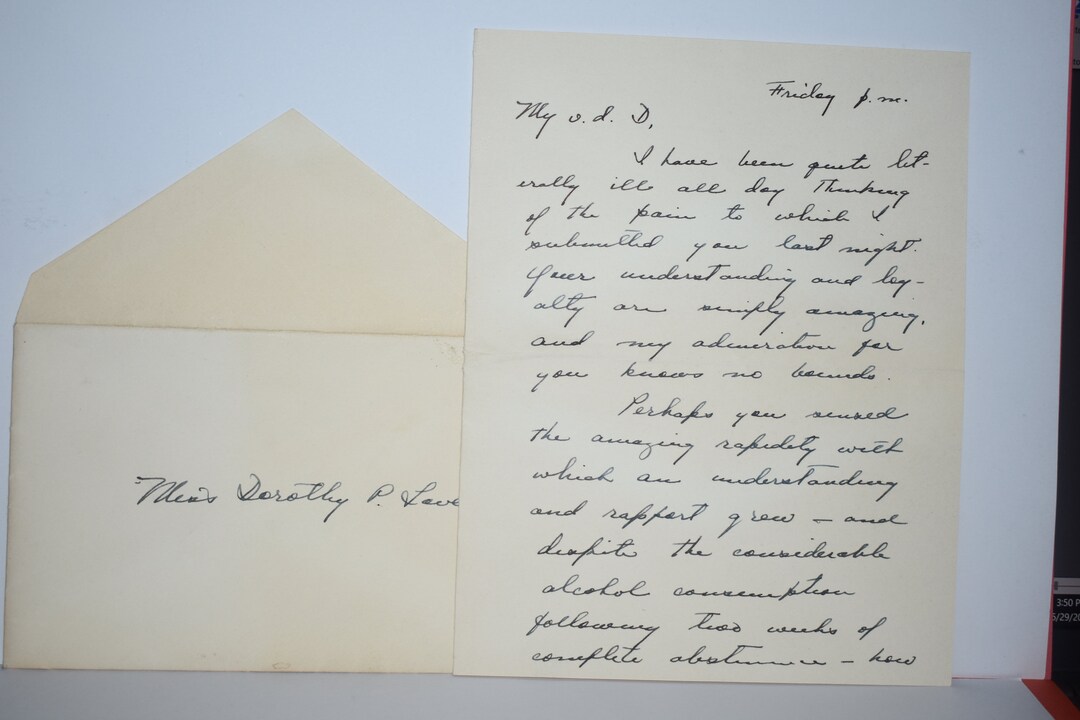 Friday p.m.
My v. d. D,
I have been quite lit-
erally ill all day thinking
of the pain to which I
submitted you last night.
Your understanding and loy-
alty are simply amazing,
and my admiration for
you knows no bounds.
Perhaps you sensed
the amazing rapidity with
which an understanding
and rapport grew – and
despite the considerable
alcohol consumption
following two weeks of
complete abstinence – how
Miss Dorothy P. Love
3:50 P
5/29/20